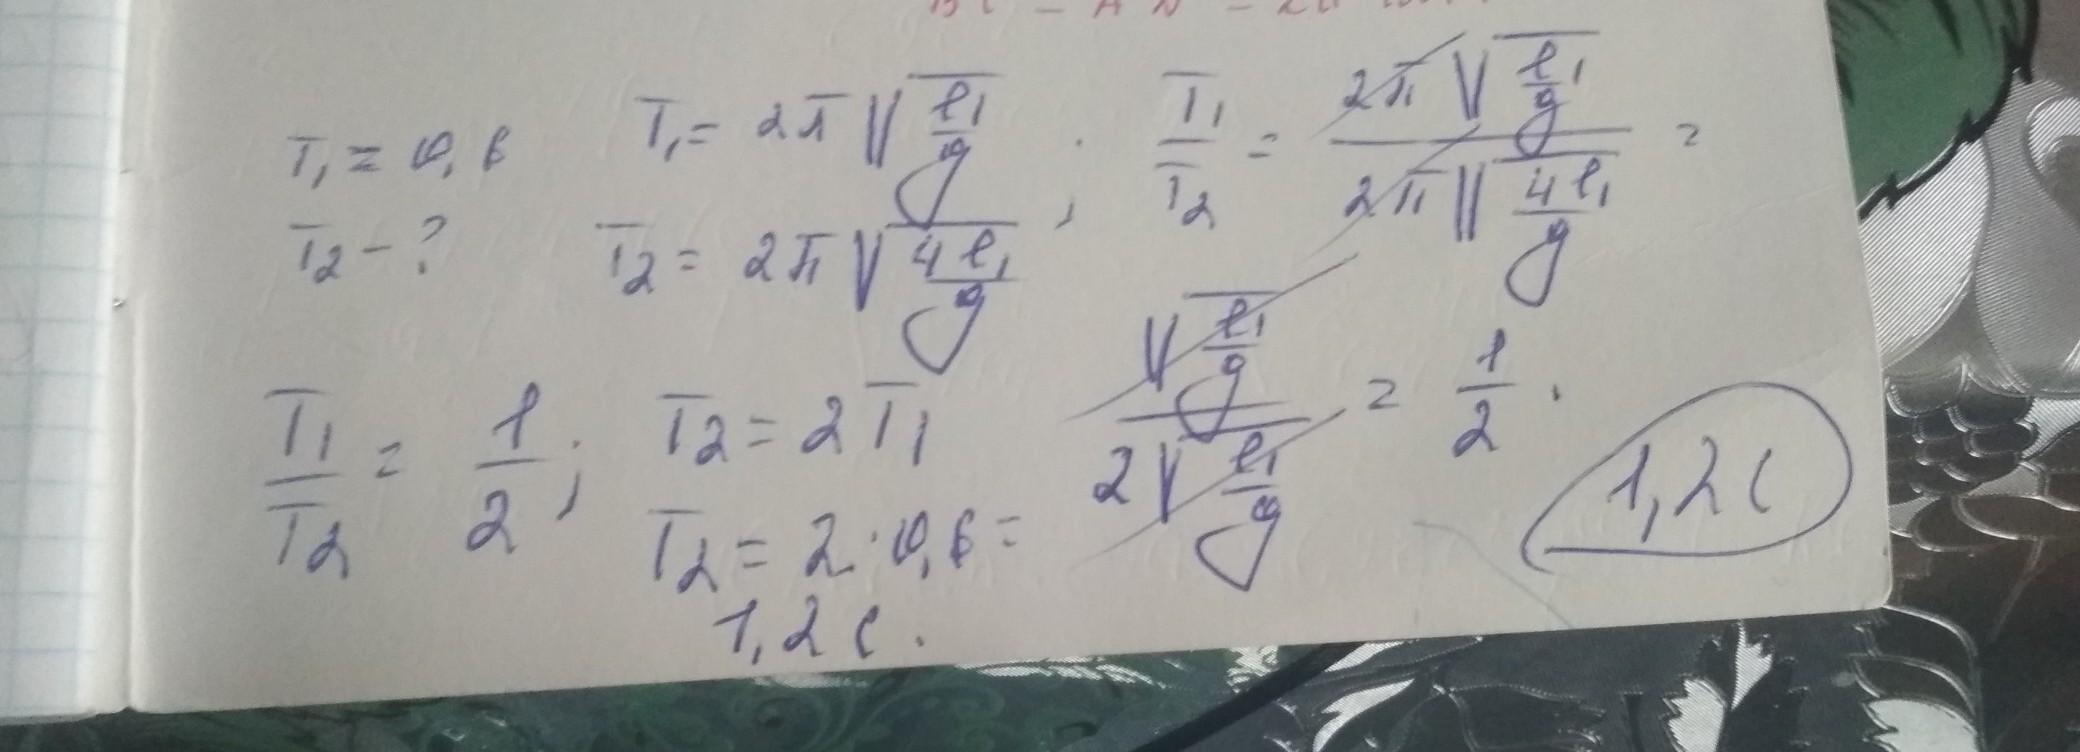 T₁ = 0,6
T₂ - ?
T₁ = 2π√(l₁/g) ;
T₂ = 2π√(4l₁/g)
T₁/T₂ = 2π√(l₁/g) / 2π√(4l₁/g) =
√(l₁/g) / 2√(l₁/g) = 1/2 .
T₁/T₂ = 1/2 ;
T₂ = 2T₁
T₂ = 2 · 0,6 =
1,2 с .
1,2 с